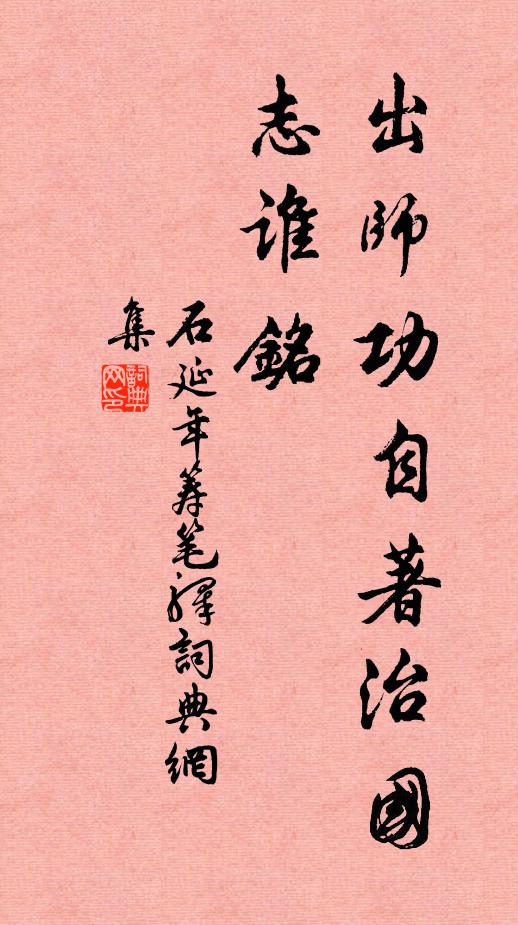 出師功自著治國
志誰銘
石延年籌笔驛詞典網
集
詞典网印